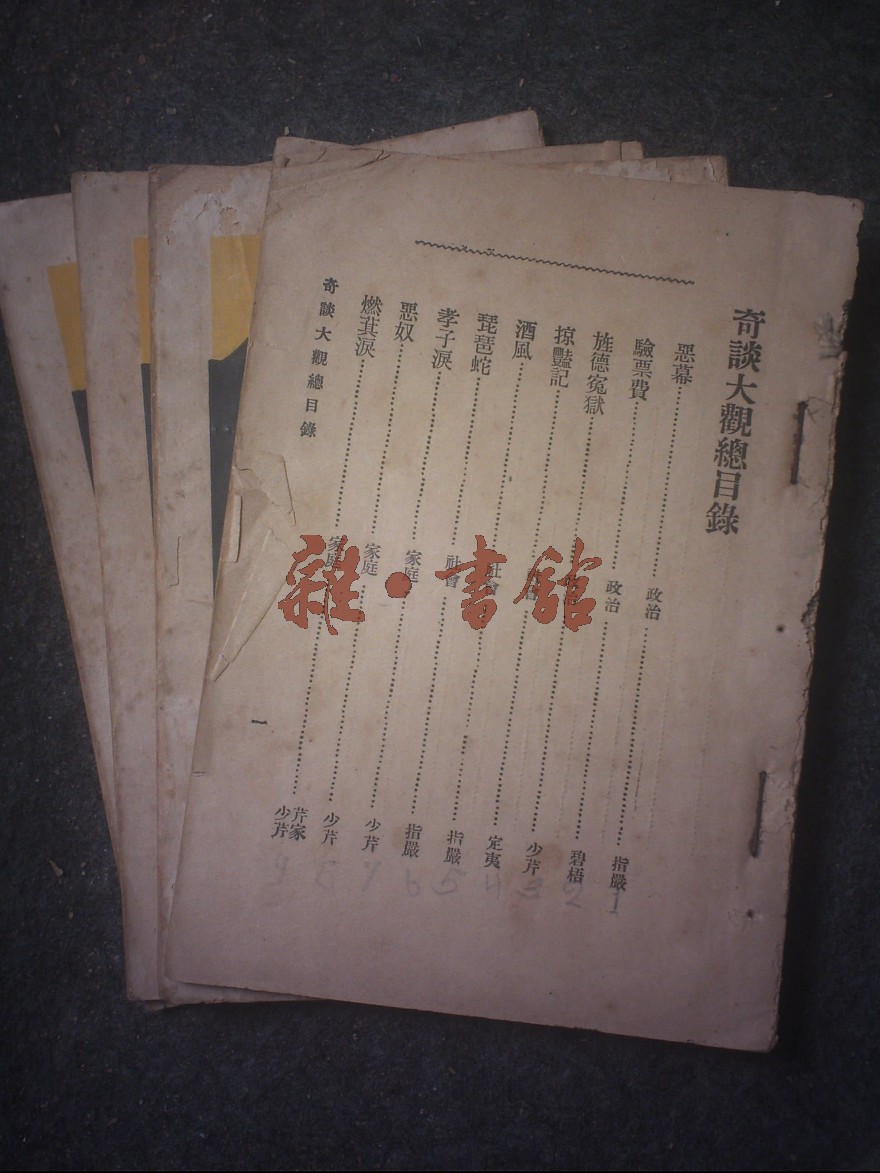 奇談大觀總目錄
惡幕……政治……指嚴 1
驗票費……政治……碧梧 2
旌德冤獄……政治……少芹 3
掠豔記……社會……定夷 4
酒風……社會……指嚴 5
琵琶蛇……社會……指嚴 6
孝子淚……家庭……少芹 7
惡奴……家庭……少芹 8
燃萁淚……家庭……芹家 少芹 9
奇談大觀總目錄
一
雜·書館